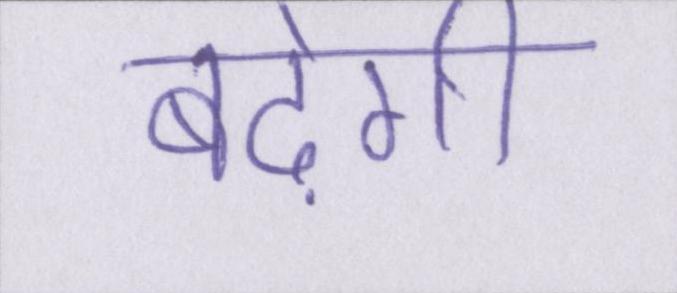 बढ़ेगी